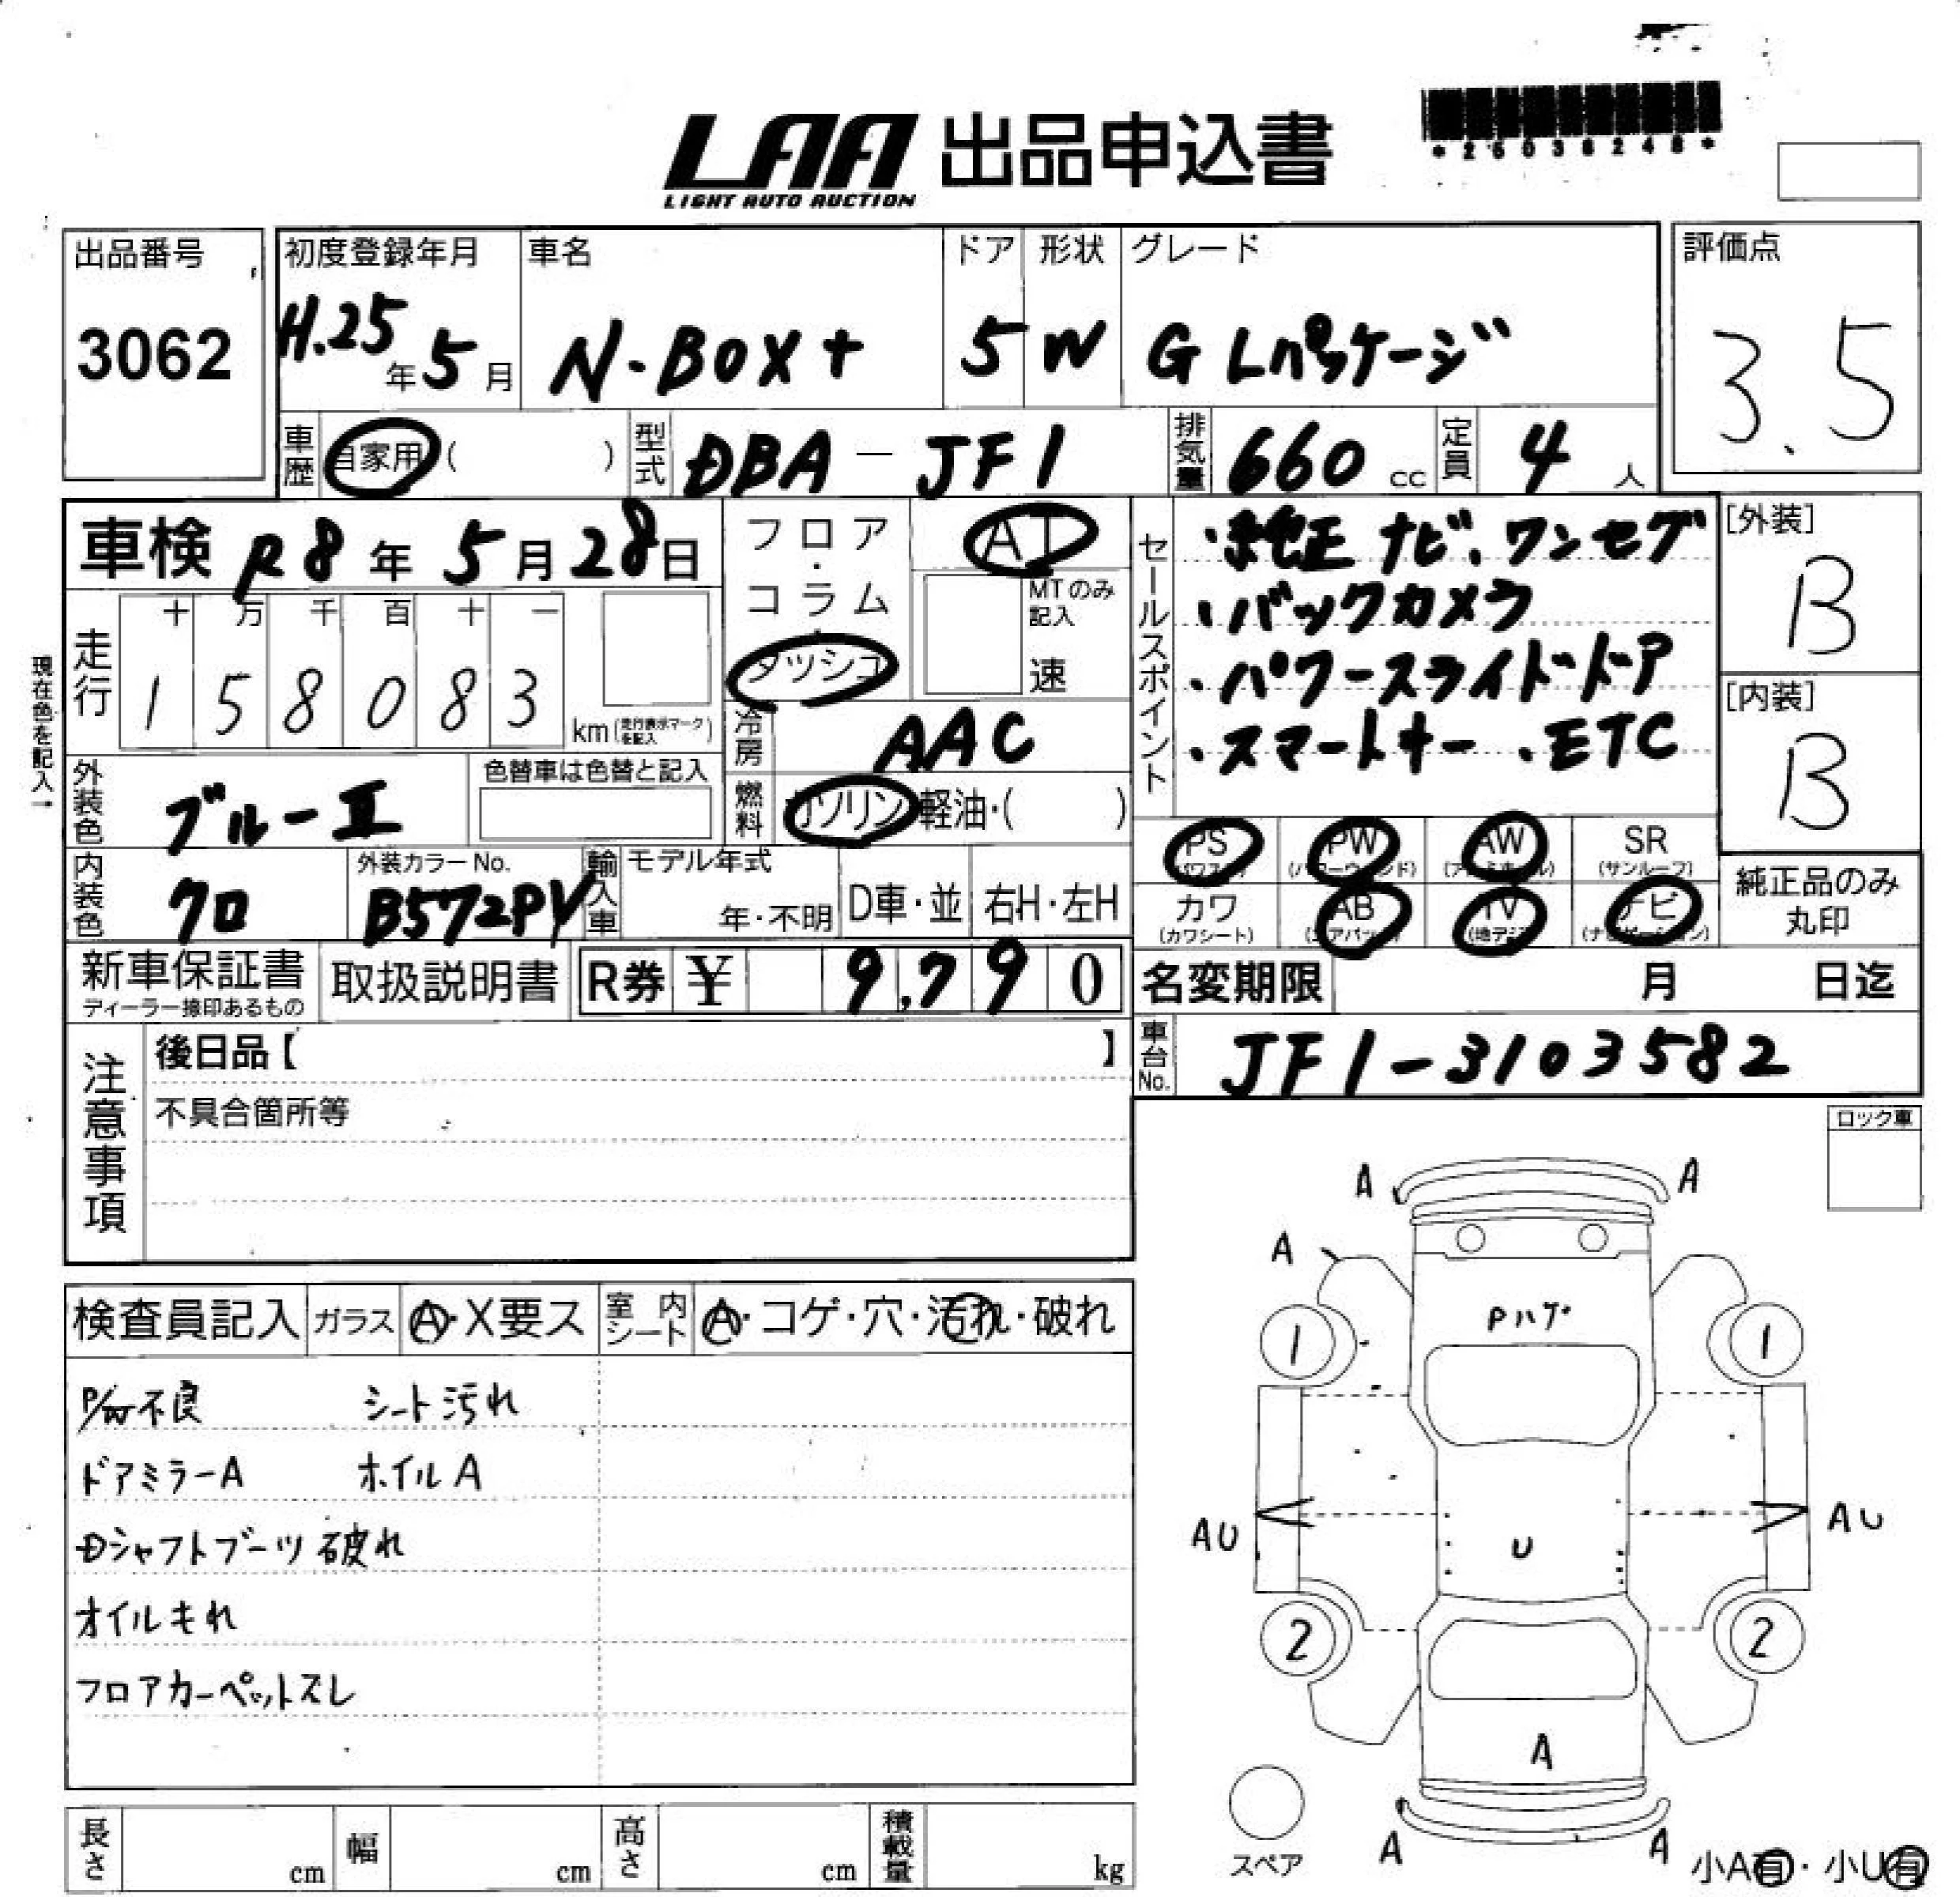 LAA 出品申込書
LIGHT AUTO AUCTION
出品番号 3062
初度登録年月 H.25年5月
車名 N-BOX+
ドア 5
形状 W
グレード G Lパッケージ
評価点 3.5
車歴 自家用( )
型式 DBA-JF1
排気量 660cc
定員 4人
車検 R8年5月28日
フロア・コラム・ダッシュ
AT
MTのみ記入
速
セールスポイント
・純正ナビ、ワンセグ
・バックカメラ
・パワースライドドア
・スマートキー ・ETC
[外装] B
[内装] B
現在色を記入→
走行
十 万 千 百 十 一
1 5 8 0 8 3 km(走行表示マークを記入)
冷房 AAC
外装色 ブルーII
色替車は色替と記入
燃料 ガソリン 軽油・( )
PS (パワステ)
PW (パワーウィンド)
AW (アルミホイル)
SR (サンルーフ)
カワ (カワシート)
AB (エアバッグ)
TV (地デジ)
ナビ (ナビゲーション)
純正品のみ丸印
内装色 クロ
外装カラーNo. B572PV
輸入車 モデル年式 年・不明
D車・並
右H・左H
新車保証書
ディーラー捺印あるもの
取扱説明書
R券 ¥ 9,790
名変期限 月 日迄
車台No. JF1-3103582
注意事項
後日品【 】
不具合箇所等
ロック車
検査員記入 ガラス A・X要ス 室内シート A・コゲ・穴・汚れ・破れ
P/W不良 シート汚れ
ドアミラーA ホイルA
Dシャフトブーツ破れ
オイルもれ
フロアカーペットスレ
A A
A
Pハゲ
1 1
AU U AU
2 2
A
A A
スペア
小A有・小U有
長さ cm 幅 cm 高さ cm 積載量 kg